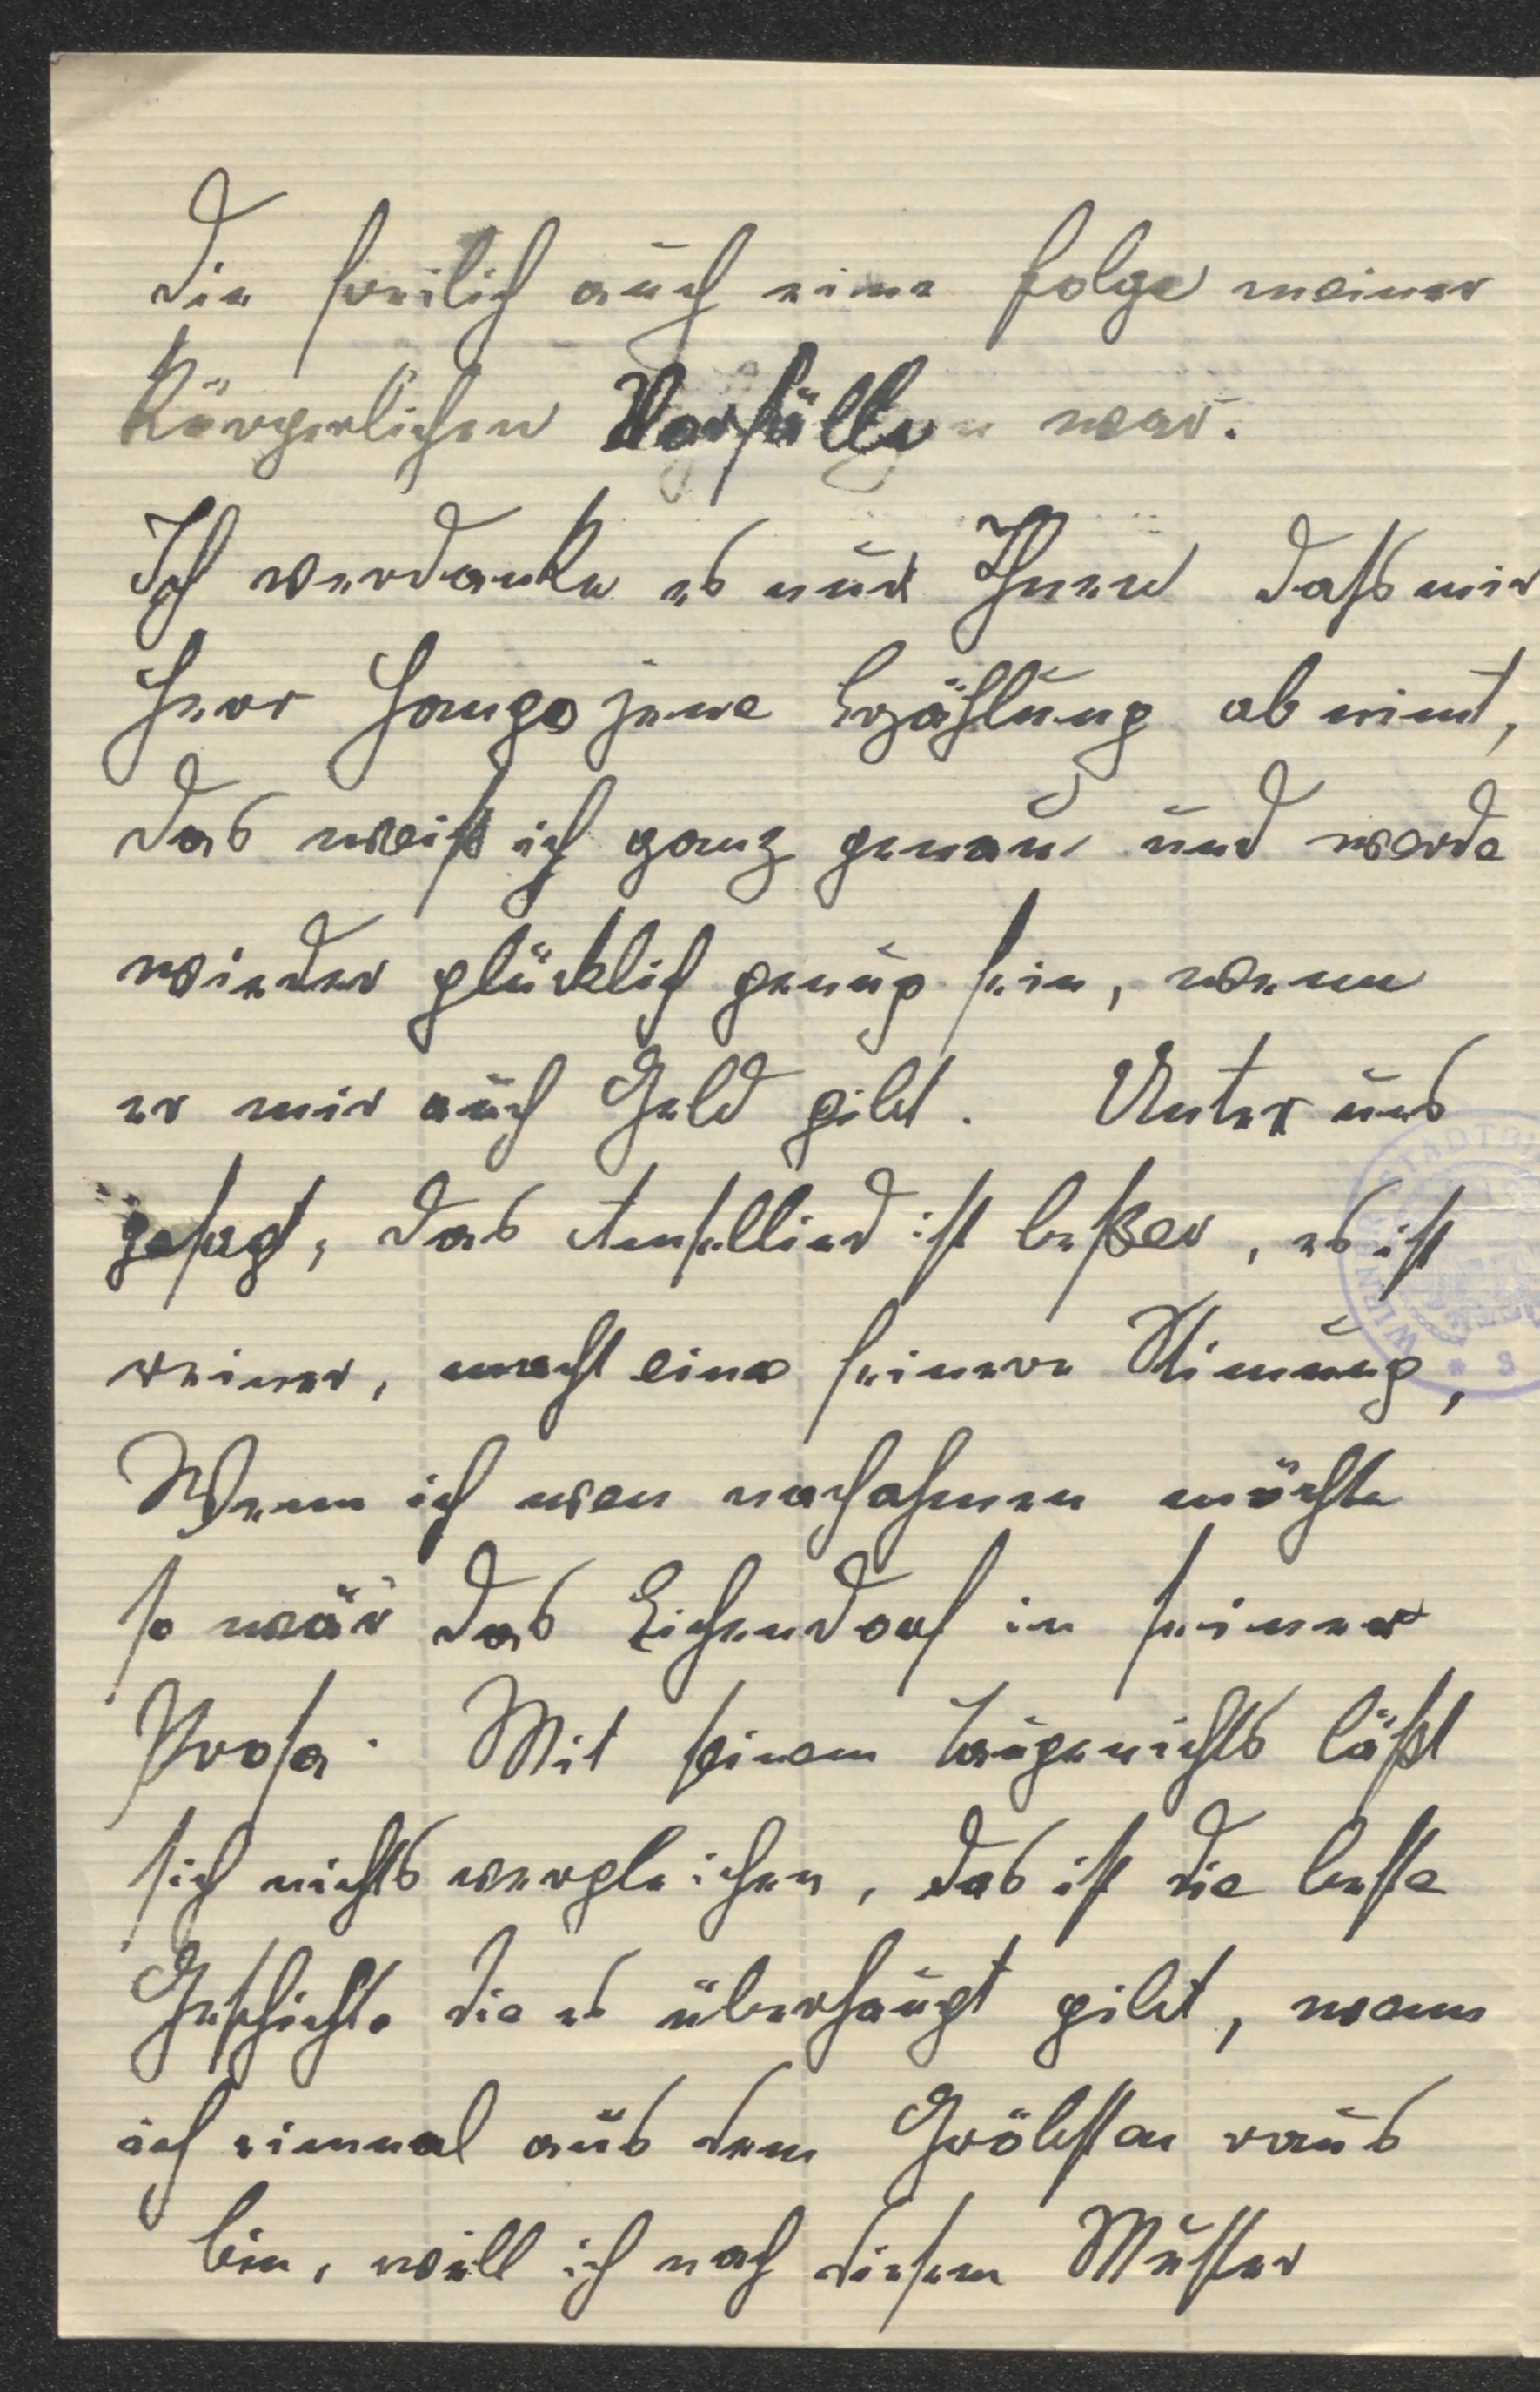 die freilich auch eine Folge meiner
körperlichen Vorfälle war.
Ich verdanke es nur Ihnen daß mir
Herr Hauge jene Erzählung abnimt,
das weiß ich ganz genau und werde
wieder glücklich genug sein, wenn
er mir auch Geld gibt. Unter uns
gesagt, das Amsellied ist beßer, es ist
reiner, macht eine feinere Stimung,
Wenn ich wen nachahmen möchte
so wär das Eichendorf in seiner
Prosa. Mit seinem Taugenichts läßt
sich nichts vergleichen, das ist die beste
Geschichte die es überhaupt gibt, wenn
ich einmal aus dem Gröbsten raus
bin, will ich nach diesem Muster
WIENER STADTBI